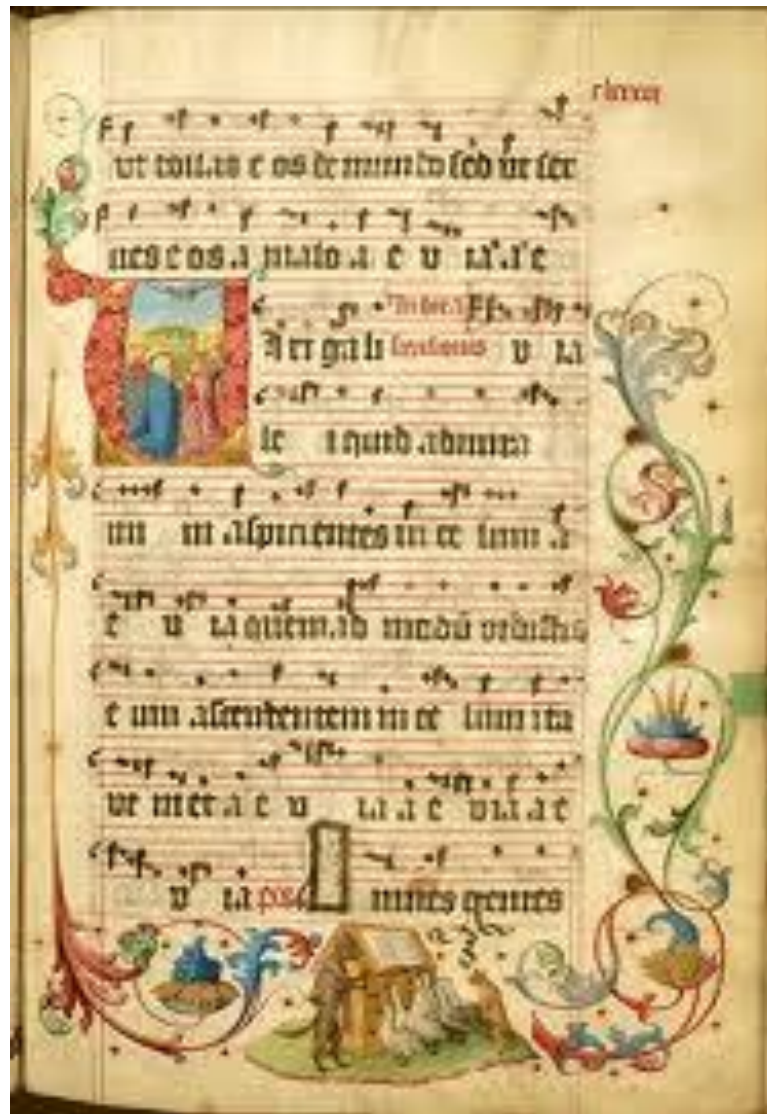 ut tollas e os de mundo sed ut ser
ues e os a malo a e v ia a e
Viri galilei v ia
le quid admira
mi ni aspicientes in ce lum a
e v ia quem ad modū vidistis
e um ascendentem in ce lum ita
ve niet a e v ia a e v ia a e
v ia ps Omnes gentes